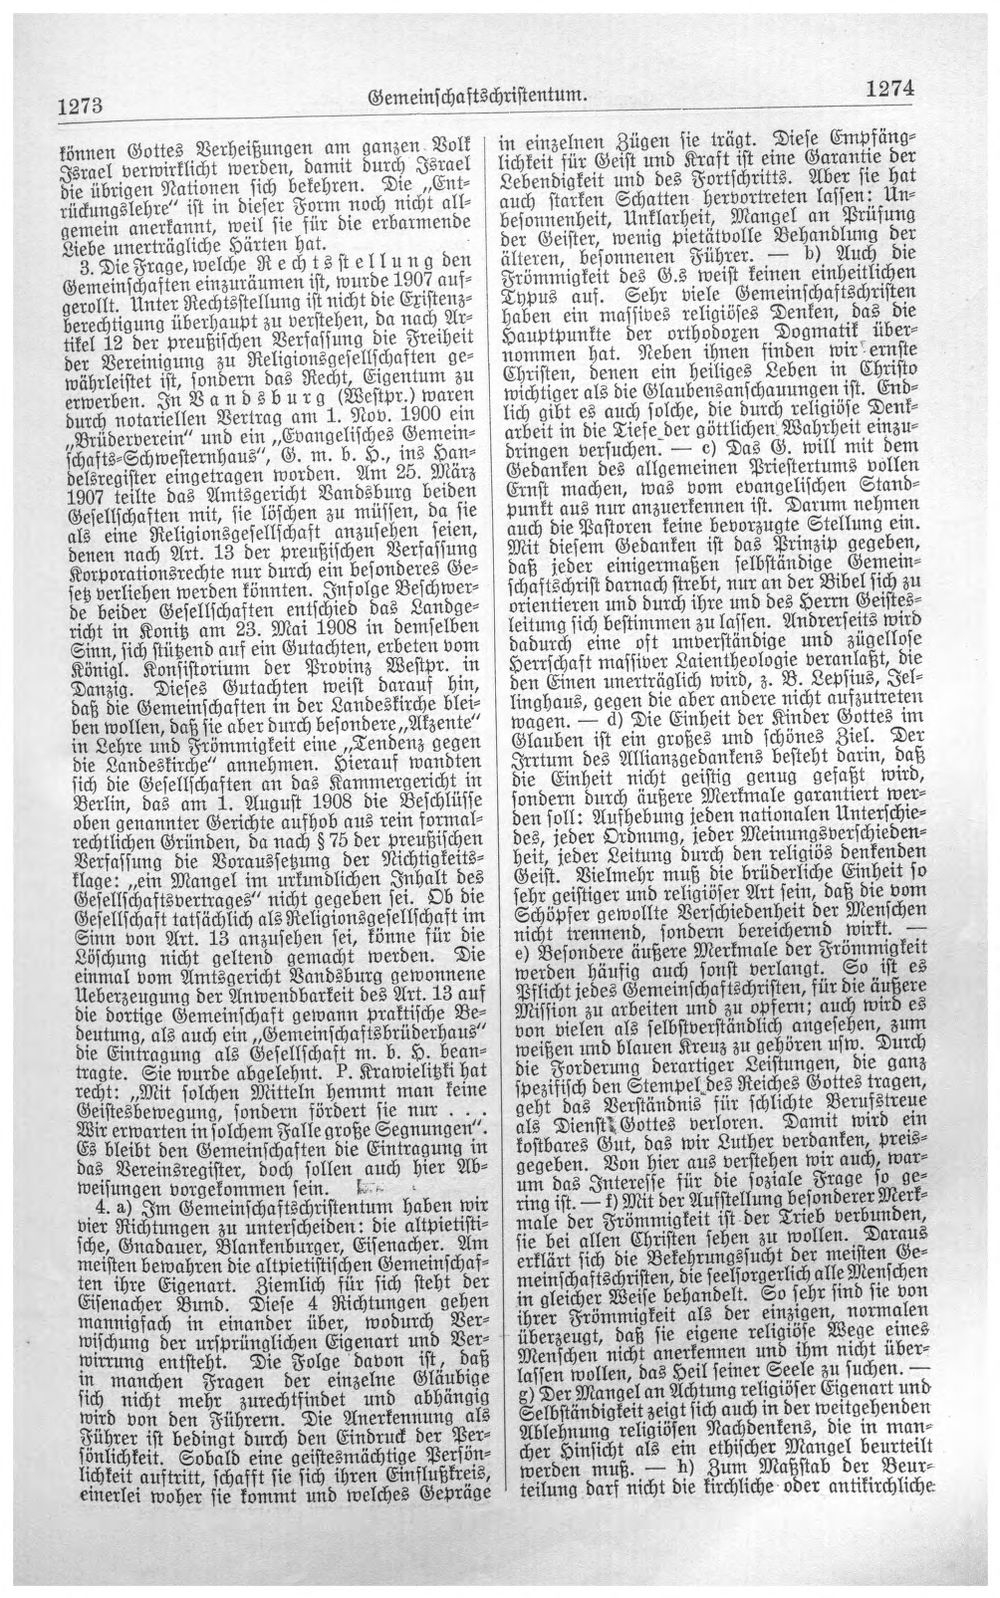 1273
Gemeinschaftschristentum.
1274
können Gottes Verheißungen am ganzen Volk
Israel verwirklicht werden, damit durch Israel
die übrigen Nationen sich bekehren. Die „Ent-
rückungslehre“ ist in dieser Form noch nicht all-
gemein anerkannt, weil sie für die erbarmende
Liebe unerträgliche Härten hat.
3. Die Frage, welche Rechtsstellung den
Gemeinschaften einzuräumen ist, wurde 1907 auf-
gerollt. Unter Rechtsstellung ist nicht die Existenz-
berechtigung überhaupt zu verstehen, da nach Ar-
tikel 12 der preußischen Verfassung die Freiheit
der Vereinigung zu Religionsgesellschaften ge-
währleistet ist, sondern das Recht, Eigentum zu
erwerben. In Vandsburg (Westpr.) waren
durch notariellen Vertrag am 1. Nov. 1900 ein
„Brüderverein“ und ein „Evangelisches Gemein-
schafts-Schwesternhaus“, G. m. b. H., ins Han-
delsregister eingetragen worden. Am 25. März
1907 teilte das Amtsgericht Vandsburg beiden
Gesellschaften mit, sie löschen zu müssen, da sie
als eine Religionsgesellschaft anzusehen seien,
denen nach Art. 13 der preußischen Verfassung
Korporationsrechte nur durch ein besonderes Ge-
setz verliehen werden könnten. Infolge Beschwer-
de beider Gesellschaften entschied das Landge-
richt in Konitz am 23. Mai 1908 in demselben
Sinn, sich stützend auf ein Gutachten, erbeten vom
Königl. Konsistorium der Provinz Westpr. in
Danzig. Dieses Gutachten weist darauf hin,
daß die Gemeinschaften in der Landeskirche blei-
ben wollen, daß sie aber durch besondere „Akzente“
in Lehre und Frömmigkeit eine „Tendenz gegen
die Landeskirche“ annehmen. Hierauf wandten
sich die Gesellschaften an das Kammergericht in
Berlin, das am 1. August 1908 die Beschlüsse
oben genannter Gerichte aufhob aus rein formal-
rechtlichen Gründen, da nach § 75 der preußischen
Verfassung die Voraussetzung der Nichtigkeits-
klage: „ein Mangel im urkundlichen Inhalt des
Gesellschaftsvertrages“ nicht gegeben sei. Ob die
Gesellschaft tatsächlich als Religionsgesellschaft im
Sinn von Art. 13 anzusehen sei, könne für die
Löschung nicht geltend gemacht werden. Die
einmal vom Amtsgericht Vandsburg gewonnene
Ueberzeugung der Anwendbarkeit des Art. 13 auf
die dortige Gemeinschaft gewann praktische Be-
deutung, als auch ein „Gemeinschaftsbrüderhaus“
die Eintragung als Gesellschaft m. b. H. bean-
tragte. Sie wurde abgelehnt. P. Krawielitzki hat
recht: „Mit solchen Mitteln hemmt man keine
Geistesbewegung, sondern fördert sie nur . . .
Wir erwarten in solchem Falle große Segnungen“.
Es bleibt den Gemeinschaften die Eintragung in
das Vereinsregister, doch sollen auch hier Ab-
weisungen vorgekommen sein.
4. a) Im Gemeinschaftschristentum haben wir
vier Richtungen zu unterscheiden: die altpietisti-
sche, Gnadauer, Blankenburger, Eisenacher. Am
meisten bewahren die altpietistischen Gemeinschaf-
ten ihre Eigenart. Ziemlich für sich steht der
Eisenacher Bund. Diese 4 Richtungen gehen
mannigfach in einander über, wodurch Ver-
wischung der ursprünglichen Eigenart und Ver-
wirrung entsteht. Die Folge davon ist, daß
in manchen Fragen der einzelne Gläubige
sich nicht mehr zurechtfindet und abhängig
wird von den Führern. Die Anerkennung als
Führer ist bedingt durch den Eindruck der Per-
sönlichkeit. Sobald eine geistesmächtige Persön-
lichkeit auftritt, schafft sie sich ihren Einflußkreis,
einerlei woher sie kommt und welches Gepräge
in einzelnen Zügen sie trägt. Diese Empfäng-
lichkeit für Geist und Kraft ist eine Garantie der
Lebendigkeit und des Fortschritts. Aber sie hat
auch starken Schatten hervortreten lassen: Un-
besonnenheit, Unklarheit, Mangel an Prüfung
der Geister, wenig pietätvolle Behandlung der
älteren, besonnenen Führer. — b) Auch die
Frömmigkeit des G.s weist keinen einheitlichen
Typus auf. Sehr viele Gemeinschaftschristen
haben ein massives religiöses Denken, das die
Hauptpunkte der orthodoxen Dogmatik über-
nommen hat. Neben ihnen finden wir ernste
Christen, denen ein heiliges Leben in Christo
wichtiger als die Glaubensanschauungen ist. End-
lich gibt es auch solche, die durch religiöse Denk-
arbeit in die Tiefe der göttlichen Wahrheit einzu-
dringen versuchen. — c) Das G. will mit dem
Gedanken des allgemeinen Priestertums vollen
Ernst machen, was vom evangelischen Stand-
punkt aus nur anzuerkennen ist. Darum nehmen
auch die Pastoren keine bevorzugte Stellung ein.
Mit diesem Gedanken ist das Prinzip gegeben,
daß jeder einigermaßen selbständige Gemein-
schaftschrist darnach strebt, nur an der Bibel sich zu
orientieren und durch ihre und des Herrn Geistes-
leitung sich bestimmen zu lassen. Andrerseits wird
dadurch eine oft unverständige und zügellose
Herrschaft massiver Laientheologie veranlaßt, die
den Einen unerträglich wird, z. B. Lepsius, Jel-
linghaus, gegen die aber andere nicht aufzutreten
wagen. — d) Die Einheit der Kinder Gottes im
Glauben ist ein großes und schönes Ziel. Der
Irrtum des Allianzgedankens besteht darin, daß
die Einheit nicht geistig genug gefaßt wird,
sondern durch äußere Merkmale garantiert wer-
den soll: Aufhebung jeden nationalen Unterschie-
des, jeder Ordnung, jeder Meinungsverschieden-
heit, jeder Leitung durch den religiös denkenden
Geist. Vielmehr muß die brüderliche Einheit so
sehr geistiger und religiöser Art sein, daß die vom
Schöpfer gewollte Verschiedenheit der Menschen
nicht trennend, sondern bereichernd wirkt. —
e) Besondere äußere Merkmale der Frömmigkeit
werden häufig auch sonst verlangt. So ist es
Pflicht jedes Gemeinschaftschristen, für die äußere
Mission zu arbeiten und zu opfern; auch wird es
von vielen als selbstverständlich angesehen, zum
weißen und blauen Kreuz zu gehören usw. Durch
die Forderung derartiger Leistungen, die ganz
spezifisch den Stempel des Reiches Gottes tragen,
geht das Verständnis für schlichte Berufstreue
als Dienst Gottes verloren. Damit wird ein
kostbares Gut, das wir Luther verdanken, preis-
gegeben. Von hier aus verstehen wir auch, war-
um das Interesse für die soziale Frage so ge-
ring ist. — f) Mit der Aufstellung besonderer Merk-
male der Frömmigkeit ist der Trieb verbunden,
sie bei allen Christen sehen zu wollen. Daraus
erklärt sich die Bekehrungssucht der meisten Ge-
meinschaftschristen, die seelsorgerlich alle Menschen
in gleicher Weise behandelt. So sehr sind sie von
ihrer Frömmigkeit als der einzigen, normalen
überzeugt, daß sie eigene religiöse Wege eines
Menschen nicht anerkennen und ihm nicht über-
lassen wollen, das Heil seiner Seele zu suchen. —
g) Der Mangel an Achtung religiöser Eigenart und
Selbständigkeit zeigt sich auch in der weitgehenden
Ablehnung religiösen Nachdenkens, die in man-
cher Hinsicht als ein ethischer Mangel beurteilt
werden muß. — h) Zum Maßstab der Beur-
teilung darf nicht die kirchliche oder antikirchliche